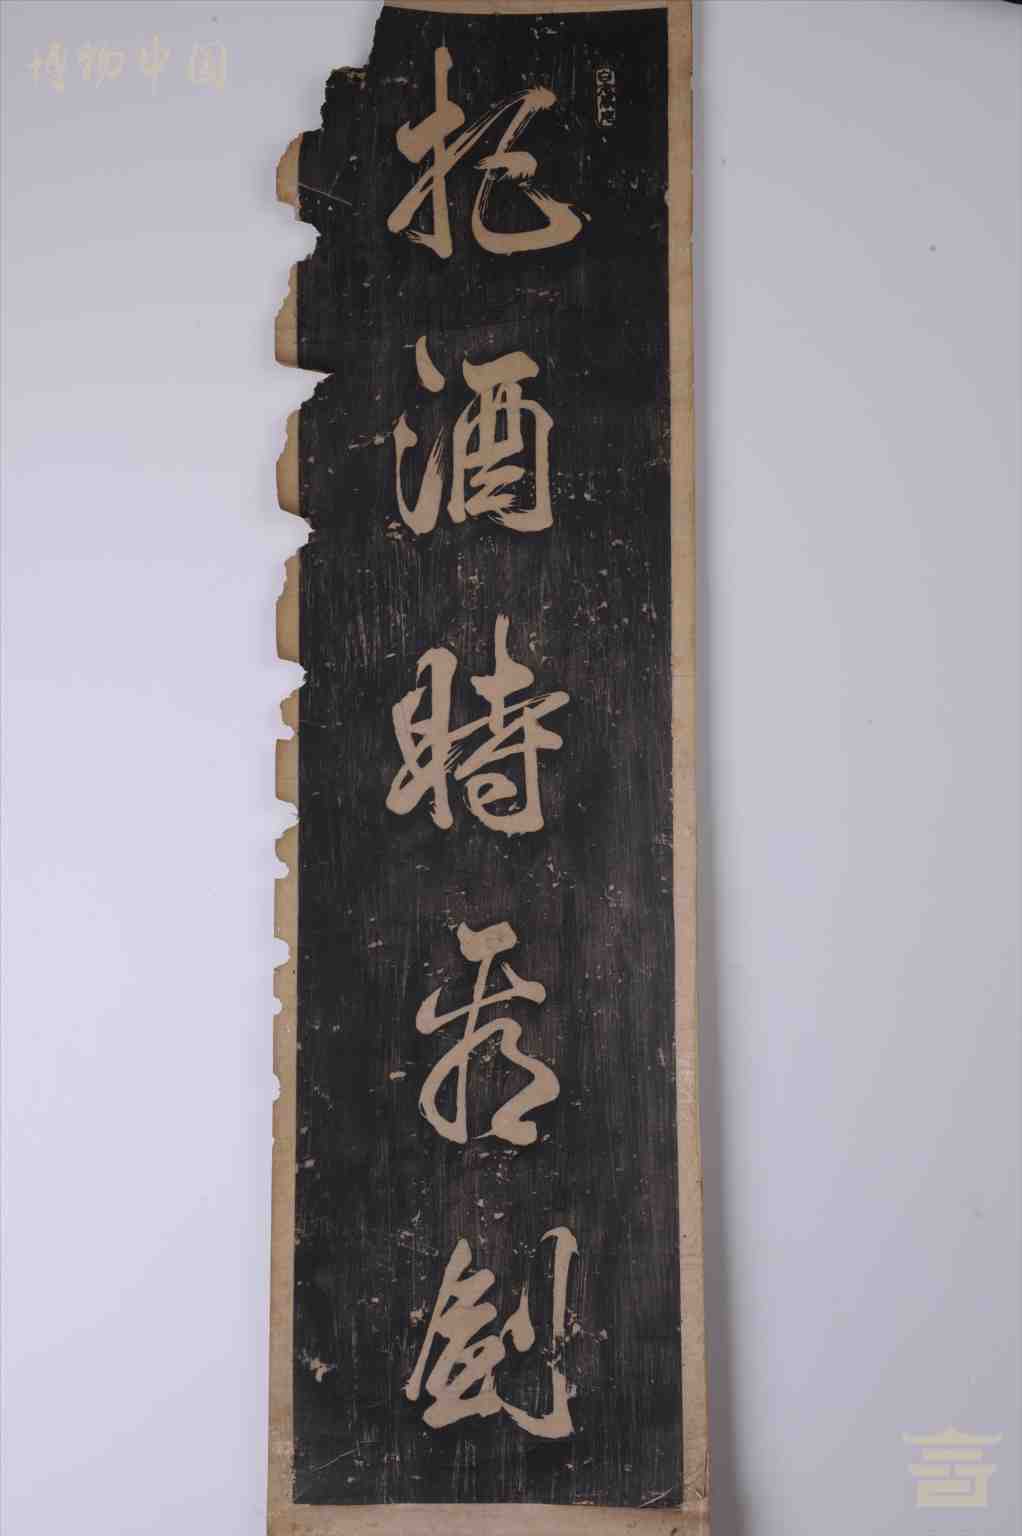 博物中国
把酒時看劍